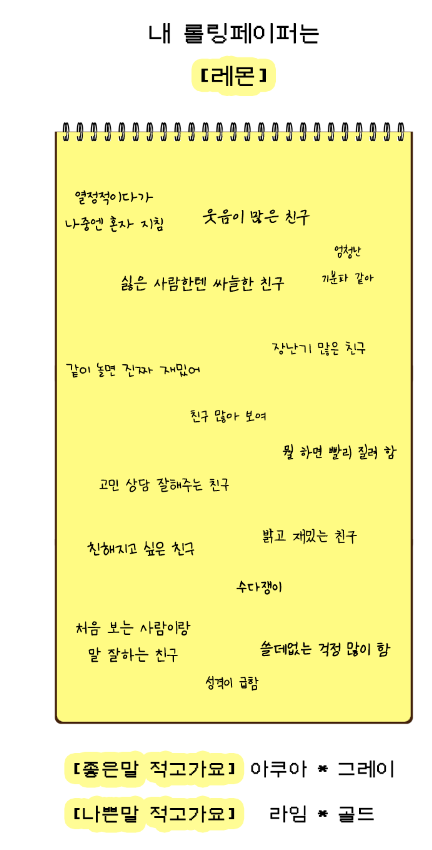 내 롤링페이퍼는
[레몬]
열정적이다가
나중엔 혼자 지침
웃음이 많은 친구
엄청난
기분파 같아
싫은 사람한텐 싸늘한 친구
장난기 많은 친구
같이 놀면 진짜 재밌어
친구 많아 보여
뭘 하면 빨리 질려 함
고민 상담 잘해주는 친구
밝고 재밌는 친구
친해지고 싶은 친구
수다쟁이
처음 보는 사람이랑
말 잘하는 친구
쓸데없는 걱정 많이 함
성격이 급함
[좋은말 적고가요] 아쿠아 * 그레이
[나쁜말 적고가요] 라임 * 골드